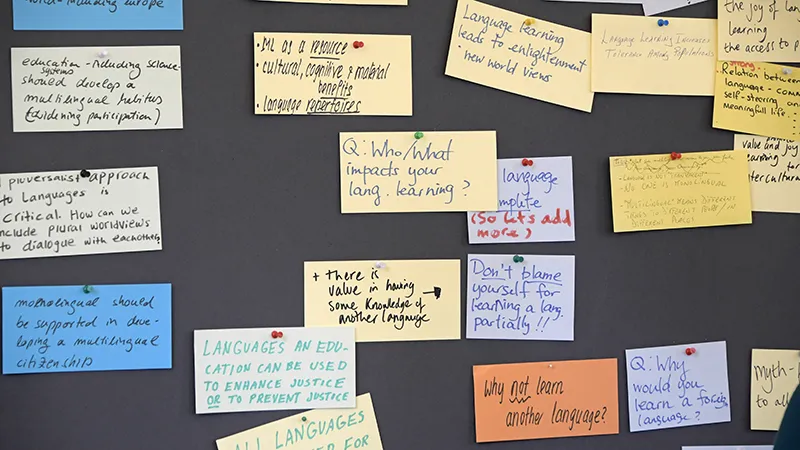 world-including europe
education -ncluding science-
systems
should develop a
multilingual habitus
(widening participation)
ML as a resource
cultural, cognitive & material
benefits
language repertoires
Language learning
leads to enlightenment
new world views
Language Learning Increases
Tolerance Among Populations
the joy of lan
learning
the access to p
strong
Relation between
language - com
self-steering an
meaningfull life
value and joy
Q: Who/What
impacts your
lang. learning?
language
(So let's add
more)
pluversalist approach
to Languages is
Critical. How can we
include plural worldviews
to dialogue with eachother?
+ There is
value in having
some knowledge of
another language
Don't blame
yourself for
learning a lang.
partially!!
monolingual should
be supported in deve-
loping a multilingual
citizenship
LANGUAGES AN EDU-
CATION CAN BE USED
TO ENHANCE JUSTICE
OR TO PREVENT JUSTICE
ALL LANGUAGES
FOR
Why not learn
another language?
Q: Why
would you
learn a foreig
language?
Myth-
to al